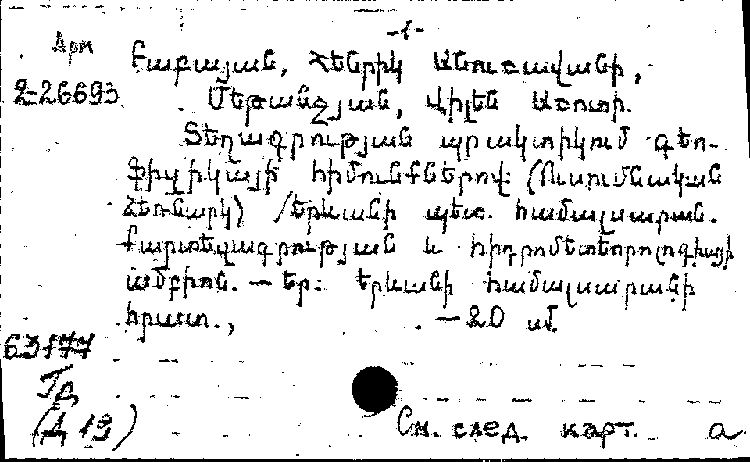 -1-
Арм
2-26693
Բաբայան, Հենրիկ Անուշավանի,
Մեթանջյան, Վիլեն Աշոտի.
Տեղագրության պրակտիկում գեո-
ֆիզիկայի հիմունքներով: (Ուսումնական
ձեռնարկ) /Երևանի պետ. համալսարան.
Քարտեզագրության և հիդրոմետեորոլոգիայի
ամբիոն. — Եր.: Երևանի համալսարանի
հրատ., — 20 սմ.
63177
Гд
(Д 19)
См. след. карт. а